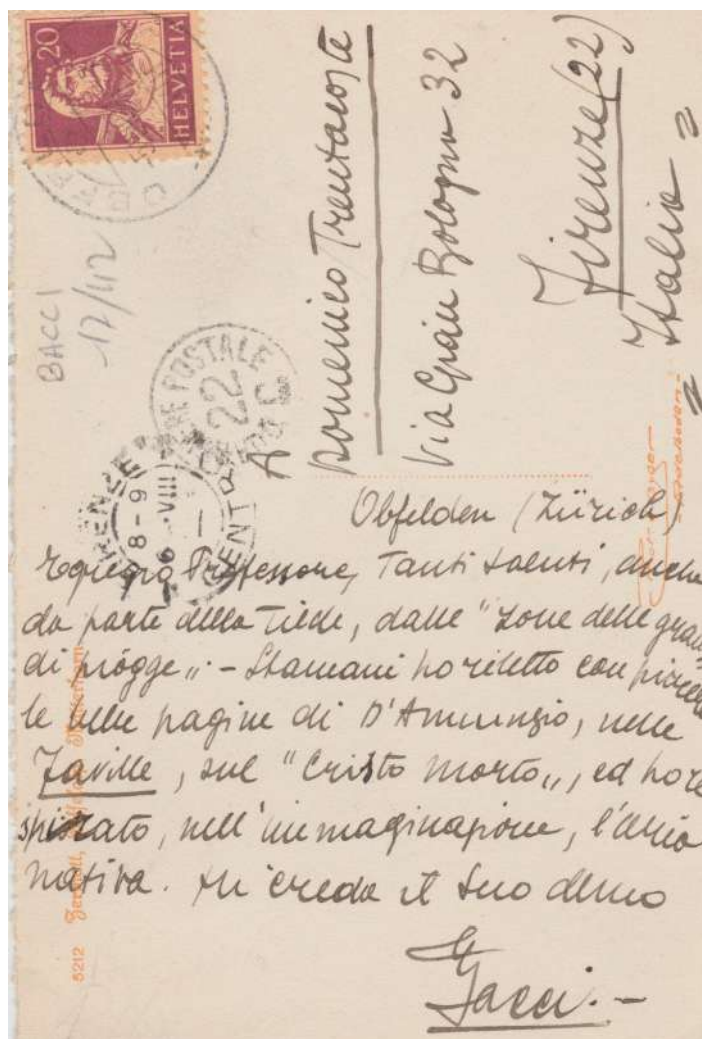 20
HELVETIA
BACCI
17/42
A
Domenico Trentacoste
Via Gian Bologna 32
Firenze (22)
Italia =
POSTALE
22
8-9
VIII
Obfelden (Zürich)
Egregio Professore, Tanti saluti, anche
da parte della Tilde, dalle "zone delle gran-
di piogge". - Stamani ho riletto con piacere
le belle pagine di D'Annunzio, nelle
Faville, sul "Cristo morto", ed ho re-
spirato, nell'immaginazione, l'aria
nativa. Mi creda il Suo devmo
Bacci. -
5212